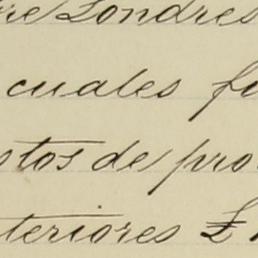 re Londres
cuales f
stos de pro
teriores £